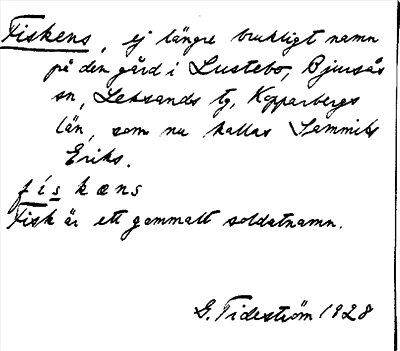 Fiskens, ej längre brukligt namn
på den gård i Lustebo, Bjursås
sn, Leksands tg, Kopparbergs
län, som nu kallas Semmits
Eriks.
fiskæns
Fisk är ett gammalt soldatnamn.
G. Tideström 1928